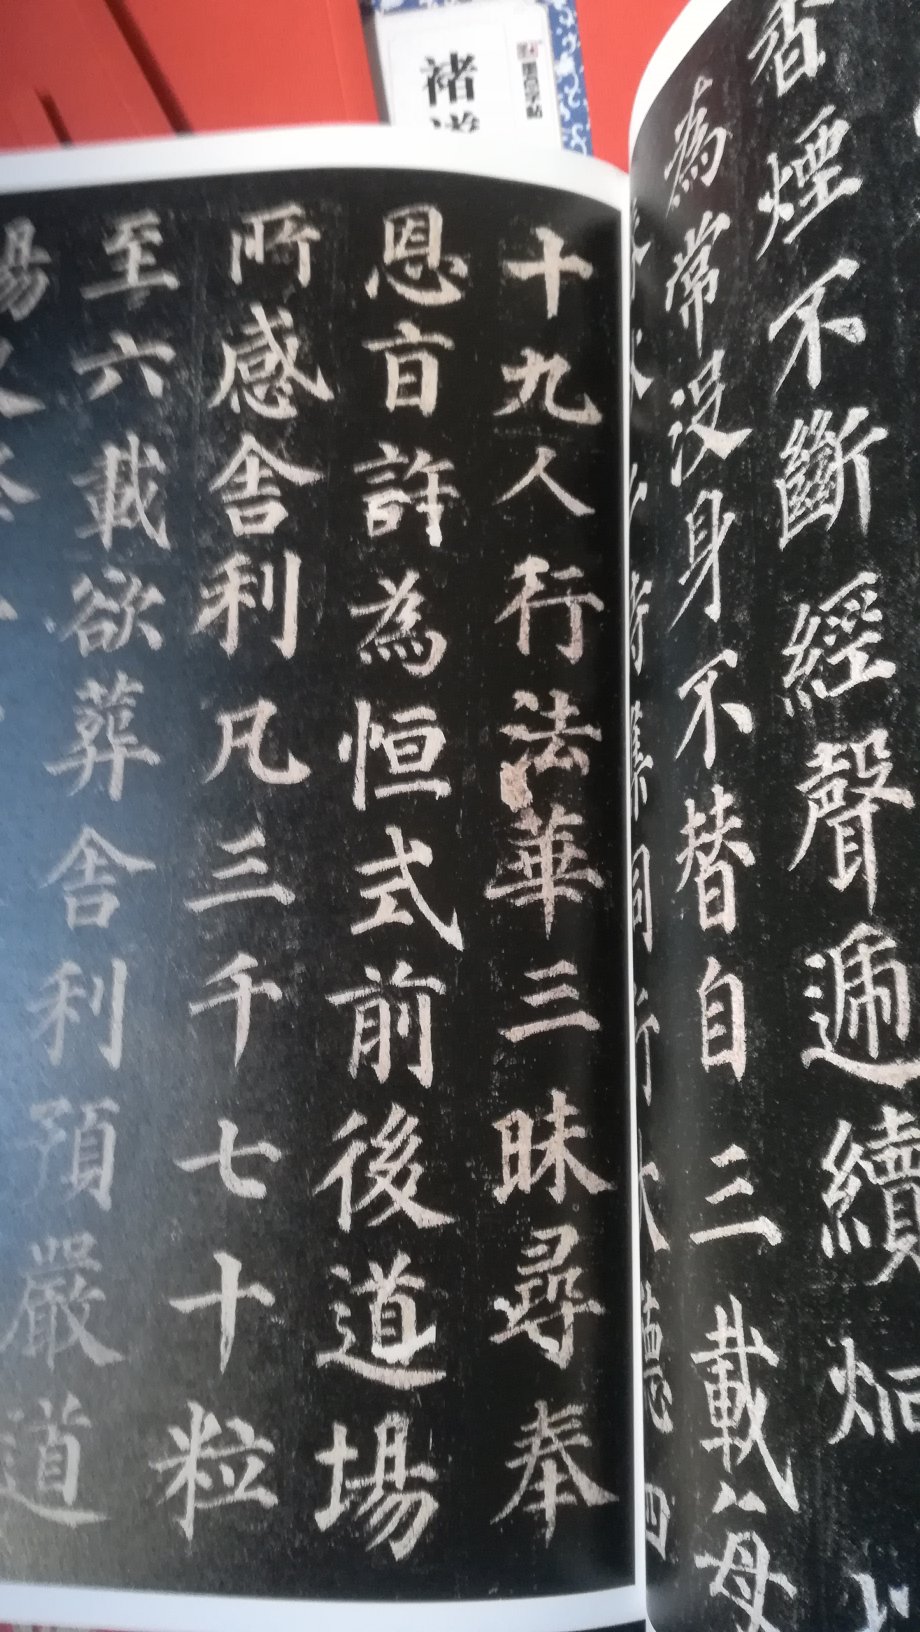 香煙不斷經聲遞續炯
為常沒身不替自三載
十九人行法華三昧尋奉
恩旨許為恒式前後道場
所感舍利凡三千七十粒
至六載欲葬舍利預嚴道
場
褚